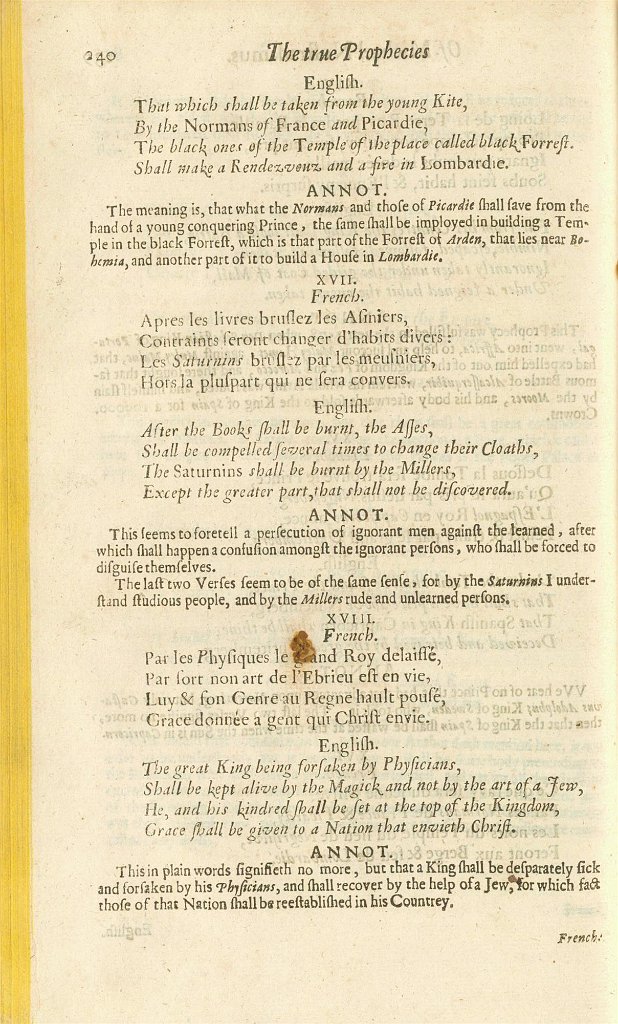 240 The true Prophecies
Engliſh.
That which ſhall be taken from the young Kite,
By the Normans of France and Picardie,
The black ones of the Temple of the place called black Forreſt.
Shall make a Rendezvouz and a fire in Lombardie.
ANNOT.
The meaning is, that what the Normans and thoſe of Picardie ſhall ſave from the
hand of a young conquering Prince, the ſame ſhall be imployed in building a Tem-
ple in the black Forreſt, which is that part of the Forreſt of Arden, that lies near Bo-
hemia, and another part of it to build a Houſe in Lombardie.
XVII.
French.
Apres les livres bruſlez les Aſiniers,
Contraints ſeront changer d'habits divers :
Les Saturnins bruſlez par les meuſniers,
Hors la pluſpart qui ne ſera convers.
Engliſh.
After the Books ſhall be burnt, the Aſſes,
Shall be compelled ſeveral times to change their Cloaths,
The Saturnins ſhall be burnt by the Millers,
Except the greater part, that ſhall not be diſcovered.
ANNOT.
This ſeems to foretell a perſecution of ignorant men againſt the learned, after
which ſhall happen a confuſion amongſt the ignorant perſons, who ſhall be forced to
diſguiſe themſelves.
The laſt two Verſes ſeem to be of the ſame ſenſe, for by the Saturnins I under-
ſtand ſtudious people, and by the Millers rude and unlearned perſons.
XVIII.
French.
Par les Phyſiques le and Roy delaiſſé,
Par ſort non art de l'Ebrieu eſt en vie,
Luy & ſon Genre au Regne hault pouſé,
Grace donnée a gent qui Chriſt envie.
Engliſh.
The great King being forſaken by Phyſicians,
Shall be kept alive by the Magick and not by the art of a Jew,
He, and his kindred ſhall be ſet at the top of the Kingdom,
Grace ſhall be given to a Nation that envieth Chriſt.
ANNOT.
This in plain words ſignifieth no more, but that a King ſhall be deſparately ſick
and forſaken by his Phyſicians, and ſhall recover by the help of a Jew, for which fact
thoſe of that Nation ſhall be reeſtabliſhed in his Countrey.
French: